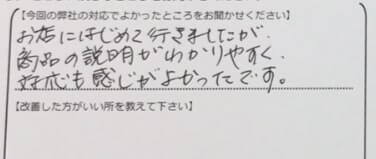 【今回の弊社の対応でよかったところをお聞かせください】
お店にはじめて行きましたが、
商品の説明がわかりやすく、
対応も感じがよかったです。
【改善した方がいい所を教えて下さい】